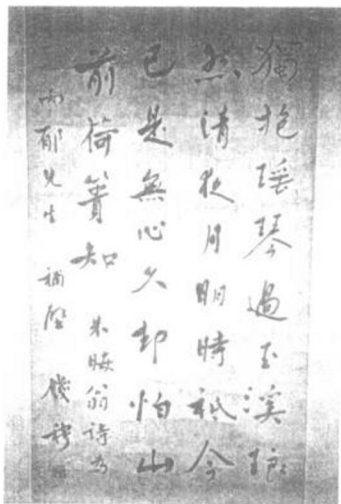 獨抱瑤琴過玉溪琅
然清夜月明時祇今
已是無心久却怕山
前荷蕢知 朱晦翁詩為
雨郁先生補壁 錢穆